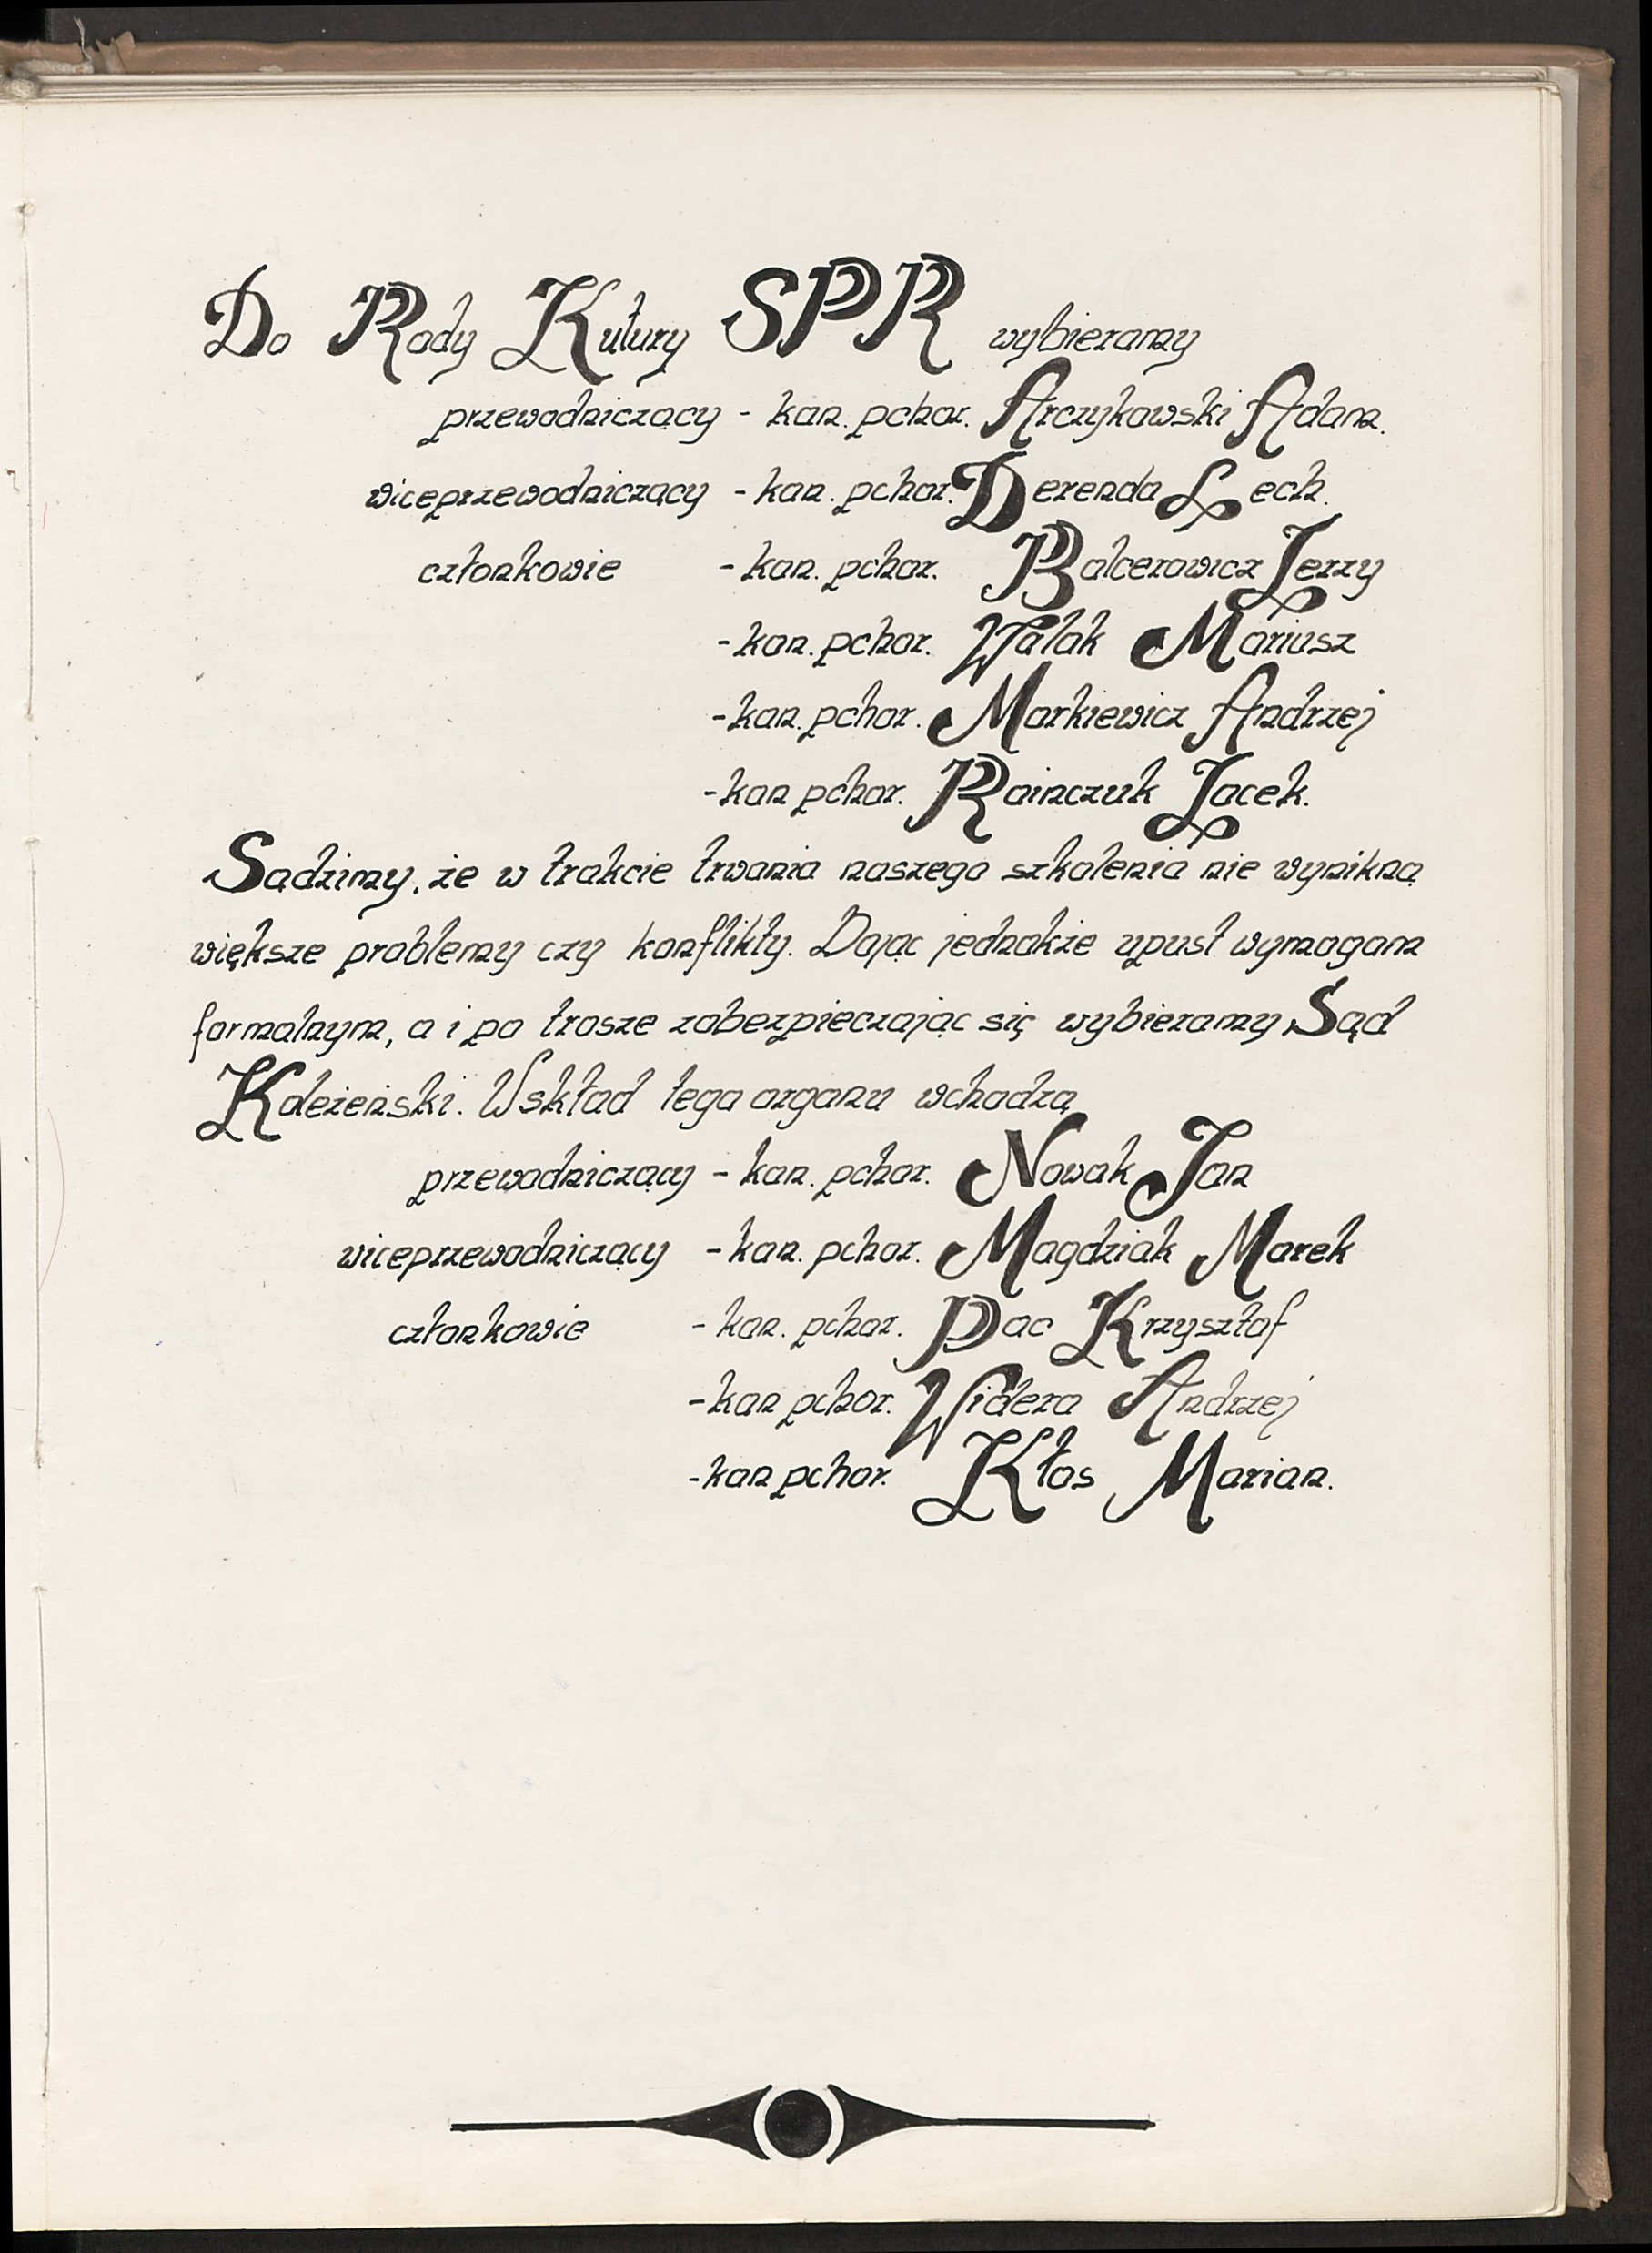 Do Rady Kutury SPR wybieramy
przewodniczący - kan. pchor. Arczykowski Adam.
wiceprzewodniczący - kan. pchor. Derenda Lech.
członkowie - kan. pchor. Balcerowicz Jerzy
- kan. pchor. Walak Mariusz
- kan. pchor. Markiewicz Andrzej
- kan pchor. Rainczuk Jacek.
Sądzimy, że w trakcie trwania naszego szkolenia nie wynikną
większe problemy czy konflikty. Dając jednakże upust wymagom
formalnym, a i po trosze zabezpieczając się wybieramy Sąd
Koleżeński. W skład tego organu wchodzą
przewodniczący - kan. pchor. Nowak Jan
wiceprzewodniczący - kan. pchor. Magdziak Marek
członkowie - kan. pchor. Pac Krzysztof
- kan pchor. Widera Andrzej
- kan pchor. Kłos Marian.